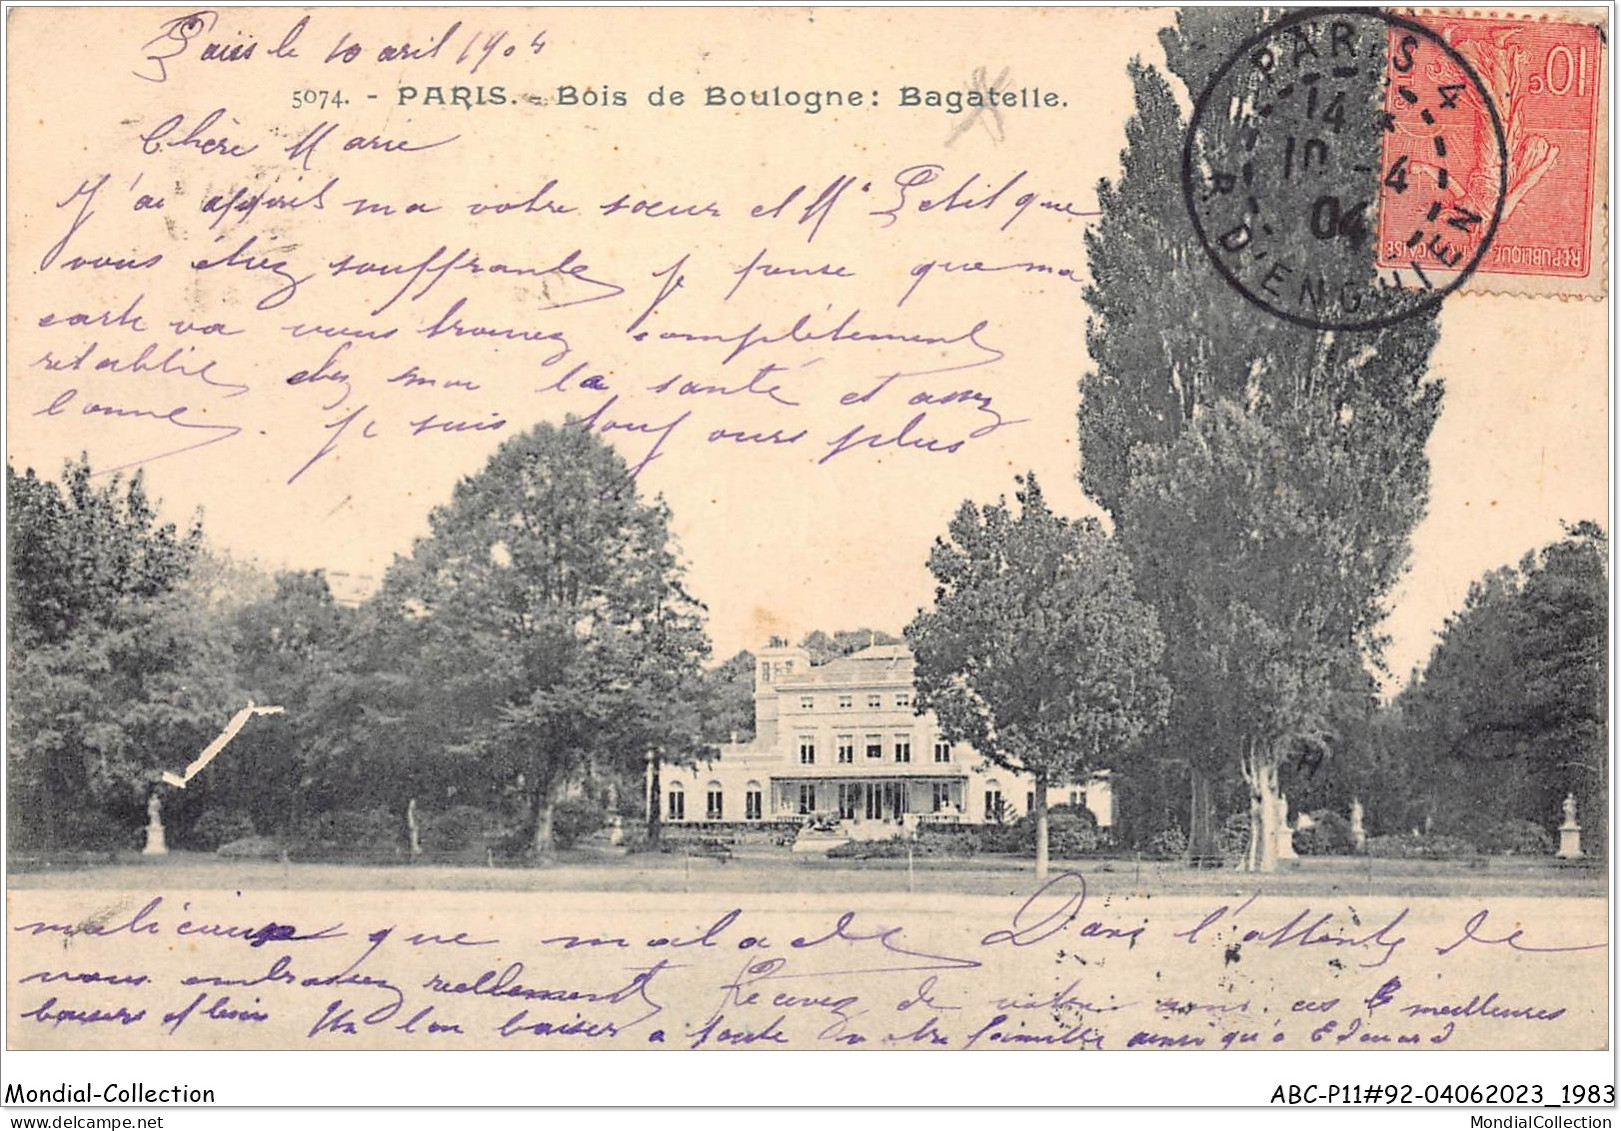 Paris le 10 avril 1904
5074. - PARIS. - Bois de Boulogne: Bagatelle.
PARIS 4
14 *
10 -4
04
R. D'ENGHIEN
10c
REPUBLIQUE FRANÇAISE
Chère Marie
J'ai appris ma votre soeur et Mr Petit que
vous étiez souffrante je pense que ma
carte va vous trouvez complètement
retablie chez moi la santé et assez
bonne. Je suis toujours plus
malicieux que malade Dans l'attente de
vous embrassez reellement Recevez de votre ami ces meilleures
baisers Un bon baiser a toute votre famille ainsi qu'a Edouard
Mondial-Collection
ABC-P11#92-04062023_1983
MondialCollection.com
MondialCollection